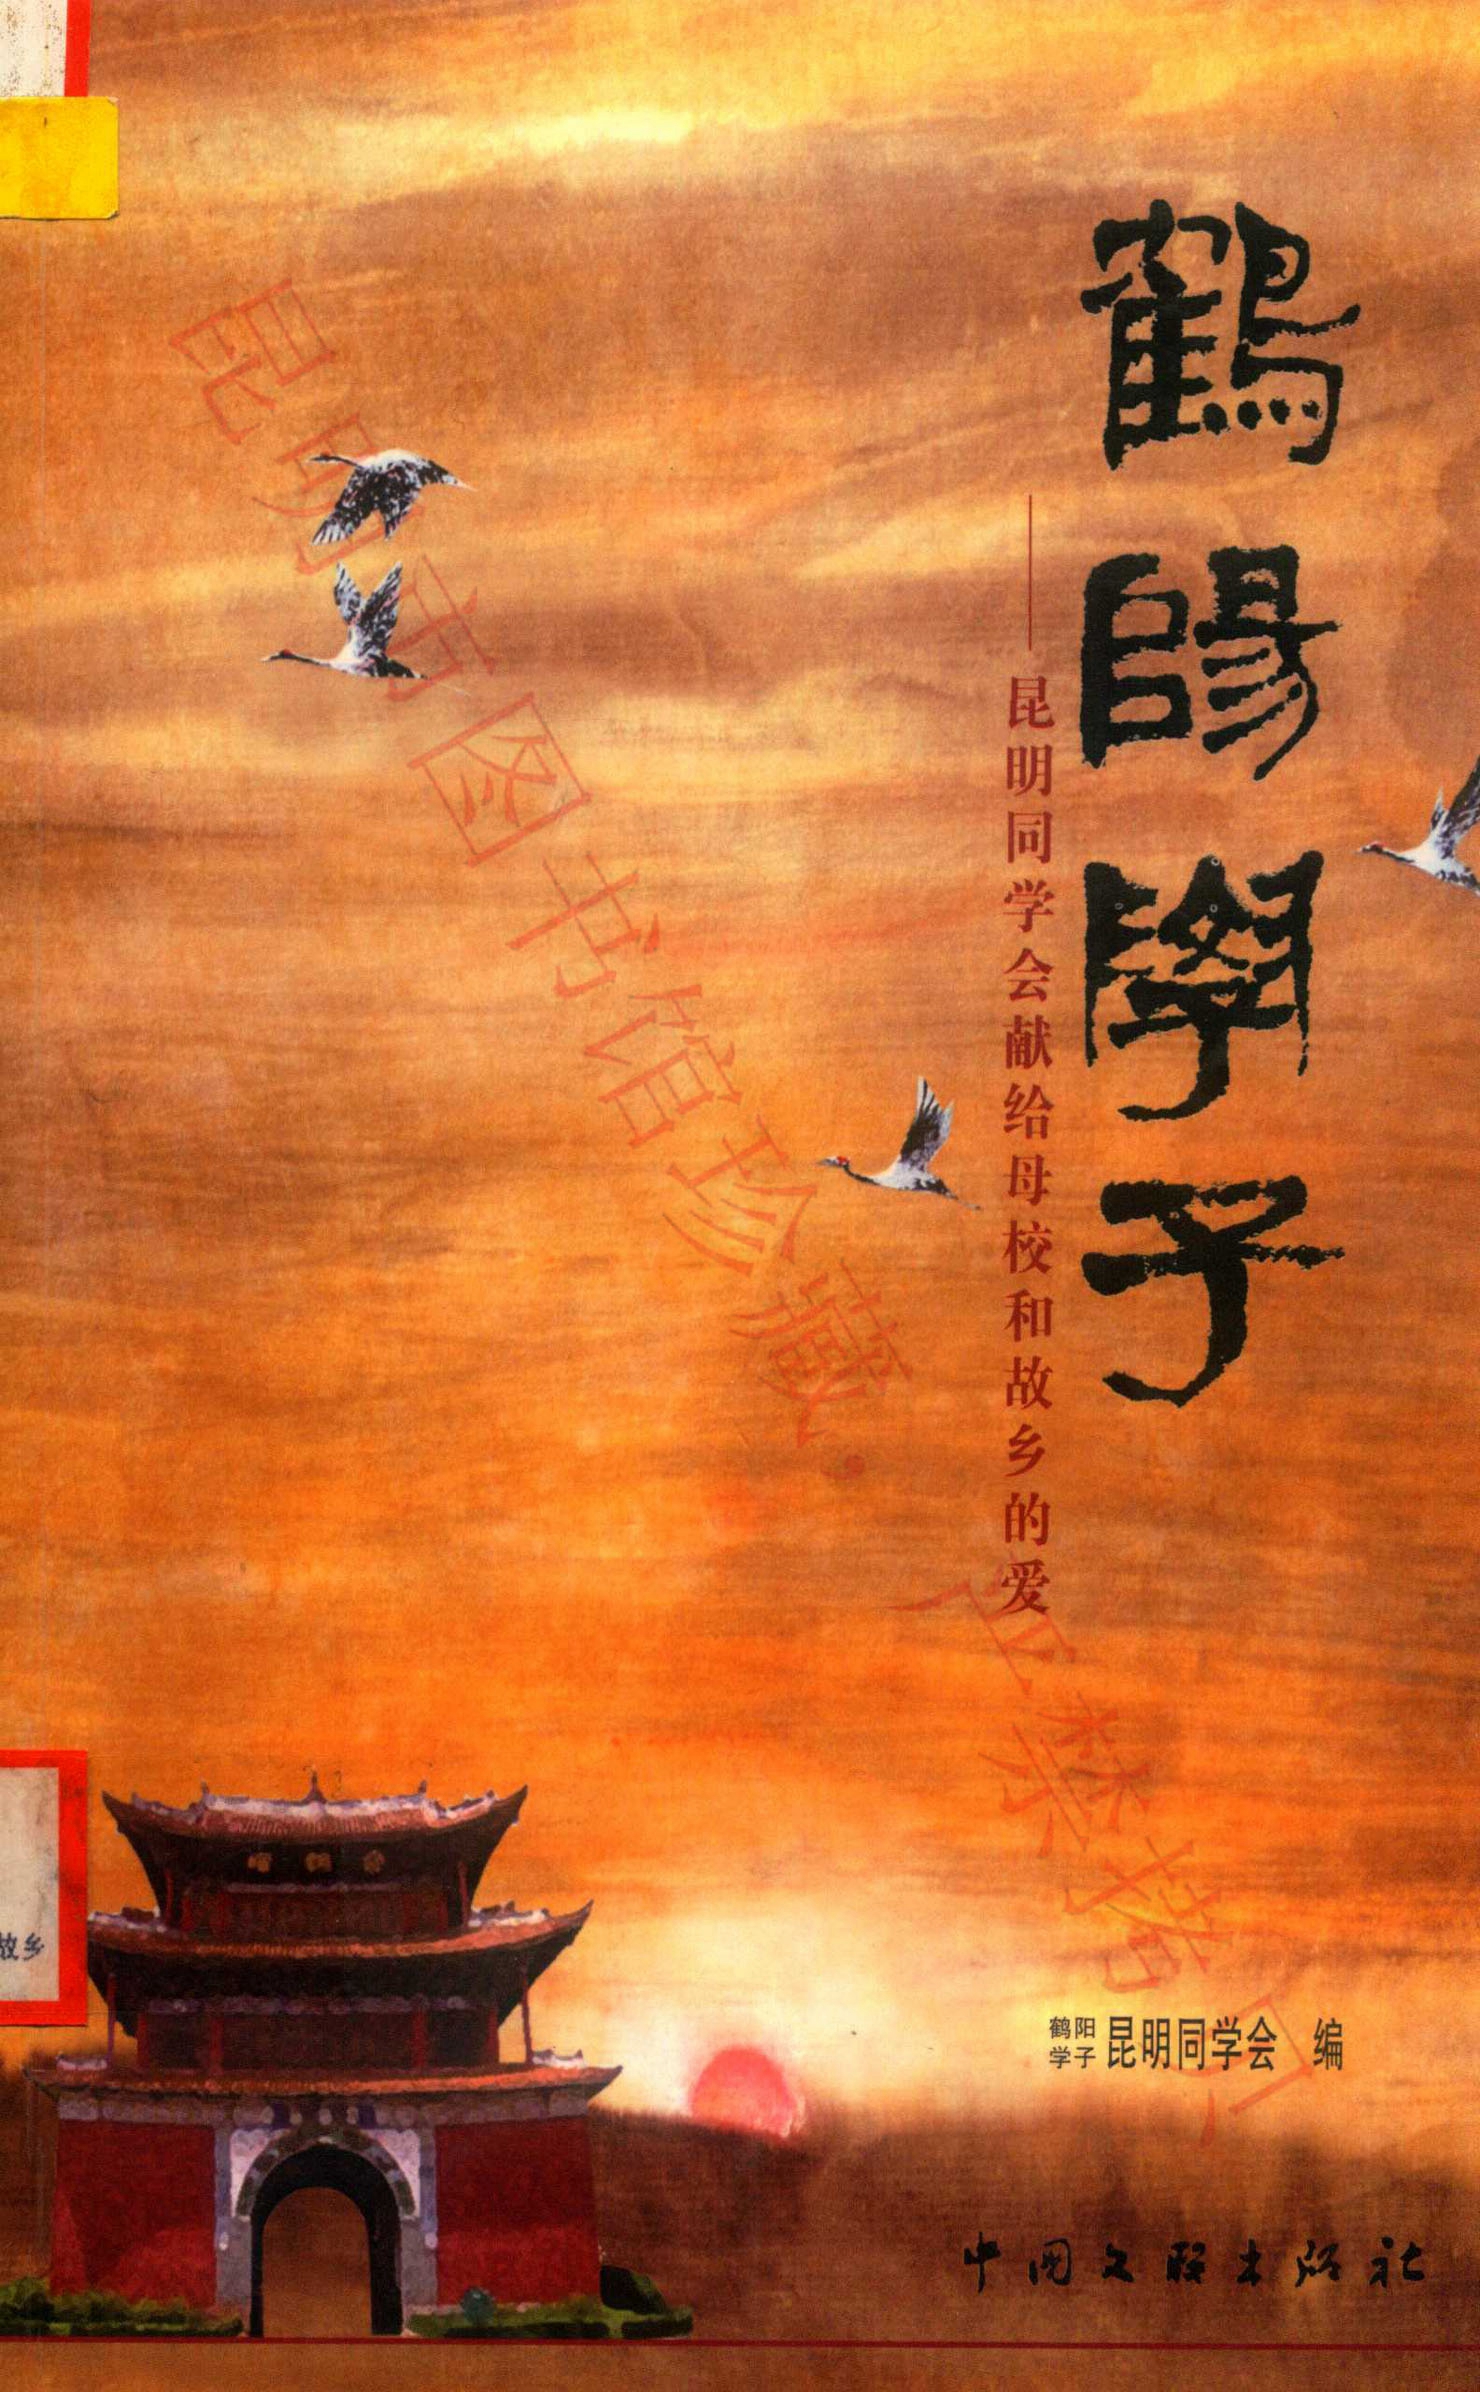 鶴陽學子
——昆明同学会献给母校和故乡的爱
昆明市图书馆珍藏·严禁拷贝
故乡
鹤阳
学子
昆明同学会 编
中国文联出版社